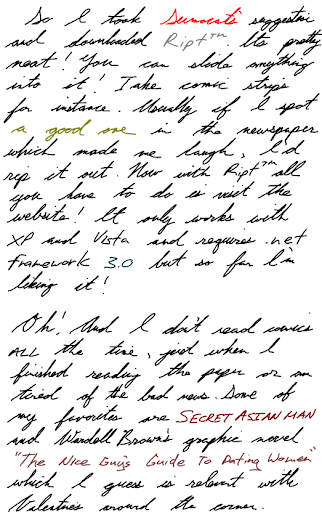 So I took Sumocat's suggestion
and downloaded Ript™. It's pretty
neat! You can slide anything
into it! Take comic strips
for instance. Usually if I spot
a good one in the newspaper
which made me laugh, I'd
rip it out. Now with Ript™ all
you have to do is visit the
website! It only works with
XP and Vista and requires .net
Framework 3.0 but so far I'm
liking it!
Oh! And I don't read comics
ALL the time, just when I
finished reading the paper or am
tired of the bad news. Some of
my favorites are SECRET ASIAN MAN
and Wardell Brown's graphic novel
"The Nice Guys Guide To Dating Women"
which I guess is relevant with
Valentines around the corner.